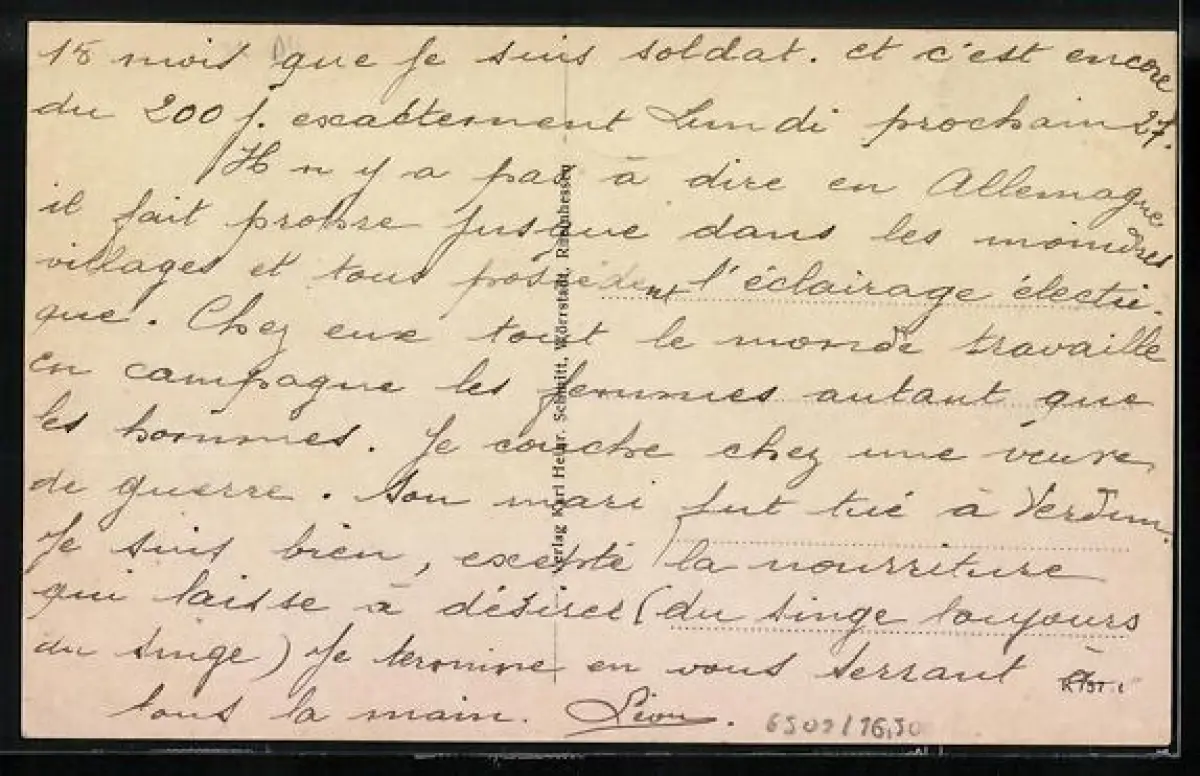 18 mois que je suis soldat. et c'est encore
du 200 f. exactement Lundi prochain 27.
Il n y a pas à dire en Allemagne
il fait propre jusque dans les moindres
villages et tous possèdent l'éclairage électri-
que. Chez eux tout le monde travaille
en campagne les femmes autant que
les hommes. Je couche chez une veuve
de guerre. Son mari fut tué à Verdun.
Je suis bien, excepté la nourriture
qui laisse à désirer (du singe toujours
du singe) Je termine en vous serrant à
tous la main. Léon.
Verlag Karl Heinr. Schmitt, Wörrstadt, Rheinhessen
6509/16,50